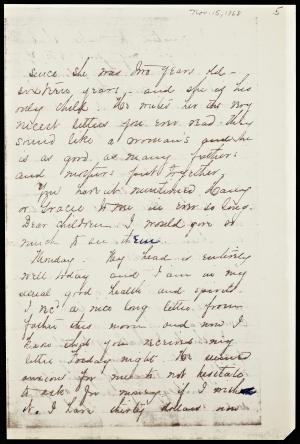 Nov. 15, 1868
5
since she was two years old -
sixteen years, - and she of his
only child. He writes us the very
nicest letters you ever read. They
sound like a woman's and she
is as good as many fathers
and mothers put together.
You haven't mentioned Harry
or Gracie to me in ever so long.
Dear children I would give so
much to see them.
Monday. My head is entirely
well today and I am in my
usual good health and spirits.
I rec'd a nice long letter from
father this morn and now I
hope that you received my
letter Tuesday night. He seems
anxious for me to not hesitate
to ask for money if I wish
it. I have thirty dollars now